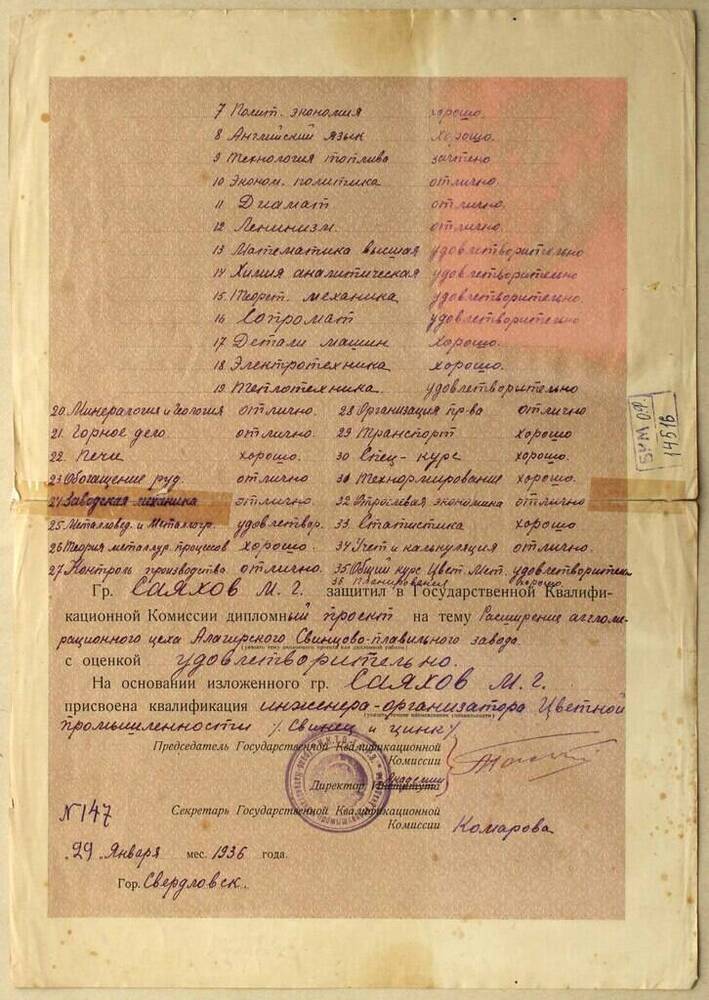 7 Полит. экономия хорошо.
8 Английский язык хорошо.
9 Технология топлива зачтено
10 Эконом. политика отлично.
11 Диамат отлично.
12 Ленинизм. отлично.
13 Математика высшая удовлетворительно
14 Химия аналитическая удовлетворительно
15. Теорет. механика удовлетворительно.
16 Сопромат удовлетворительно
17 Детали машин хорошо.
18 Электротехника хорошо.
19. Теплотехника. удовлетворительно
20. Минералогия и Геология отлично. 28 Организация пр-ва отлично
21. Горное дело. отлично. 29 Транспорт хорошо
22. Печи хорошо. 30 Спец-курс хорошо.
23 Обогащение руд. отлично 31 Технормирование хорошо.
24 Заводская механика отлично 32 Отраслевая экономика отлично
25. Металловед. и Металлогр. удовлетвор. 33. Статистика хорошо
26 Теория металлур. процессов хорошо. 34 Учет и калькуляция отлично.
27. Контроль производства отлично. 35. Общий курс Цвет. Мет. удовлетворительн
36 Планирования хорошо.
Гр. Саяхов М. Г. защитил в Государственной Квалифи-
кационной Комиссии дипломный проект на тему Расширение аггломе-
рационного цеха Алагирского Свинцово-плавильного завода.
с оценкой удовлетворительно.
На основании изложенного гр. Саяхов М. Г.
присвоена квалификация инженера-организатора Цветной
промышленности /Свинец и цинк/
Председатель Государственной Квалификационной
Комиссии
Академии
Директор Института
Секретарь Государственной Квалификационной
Комиссии Комарова
№147
"29" Января мес. 1936 года.
Гор. Свердловск.
БУМ О.Ф.
14516